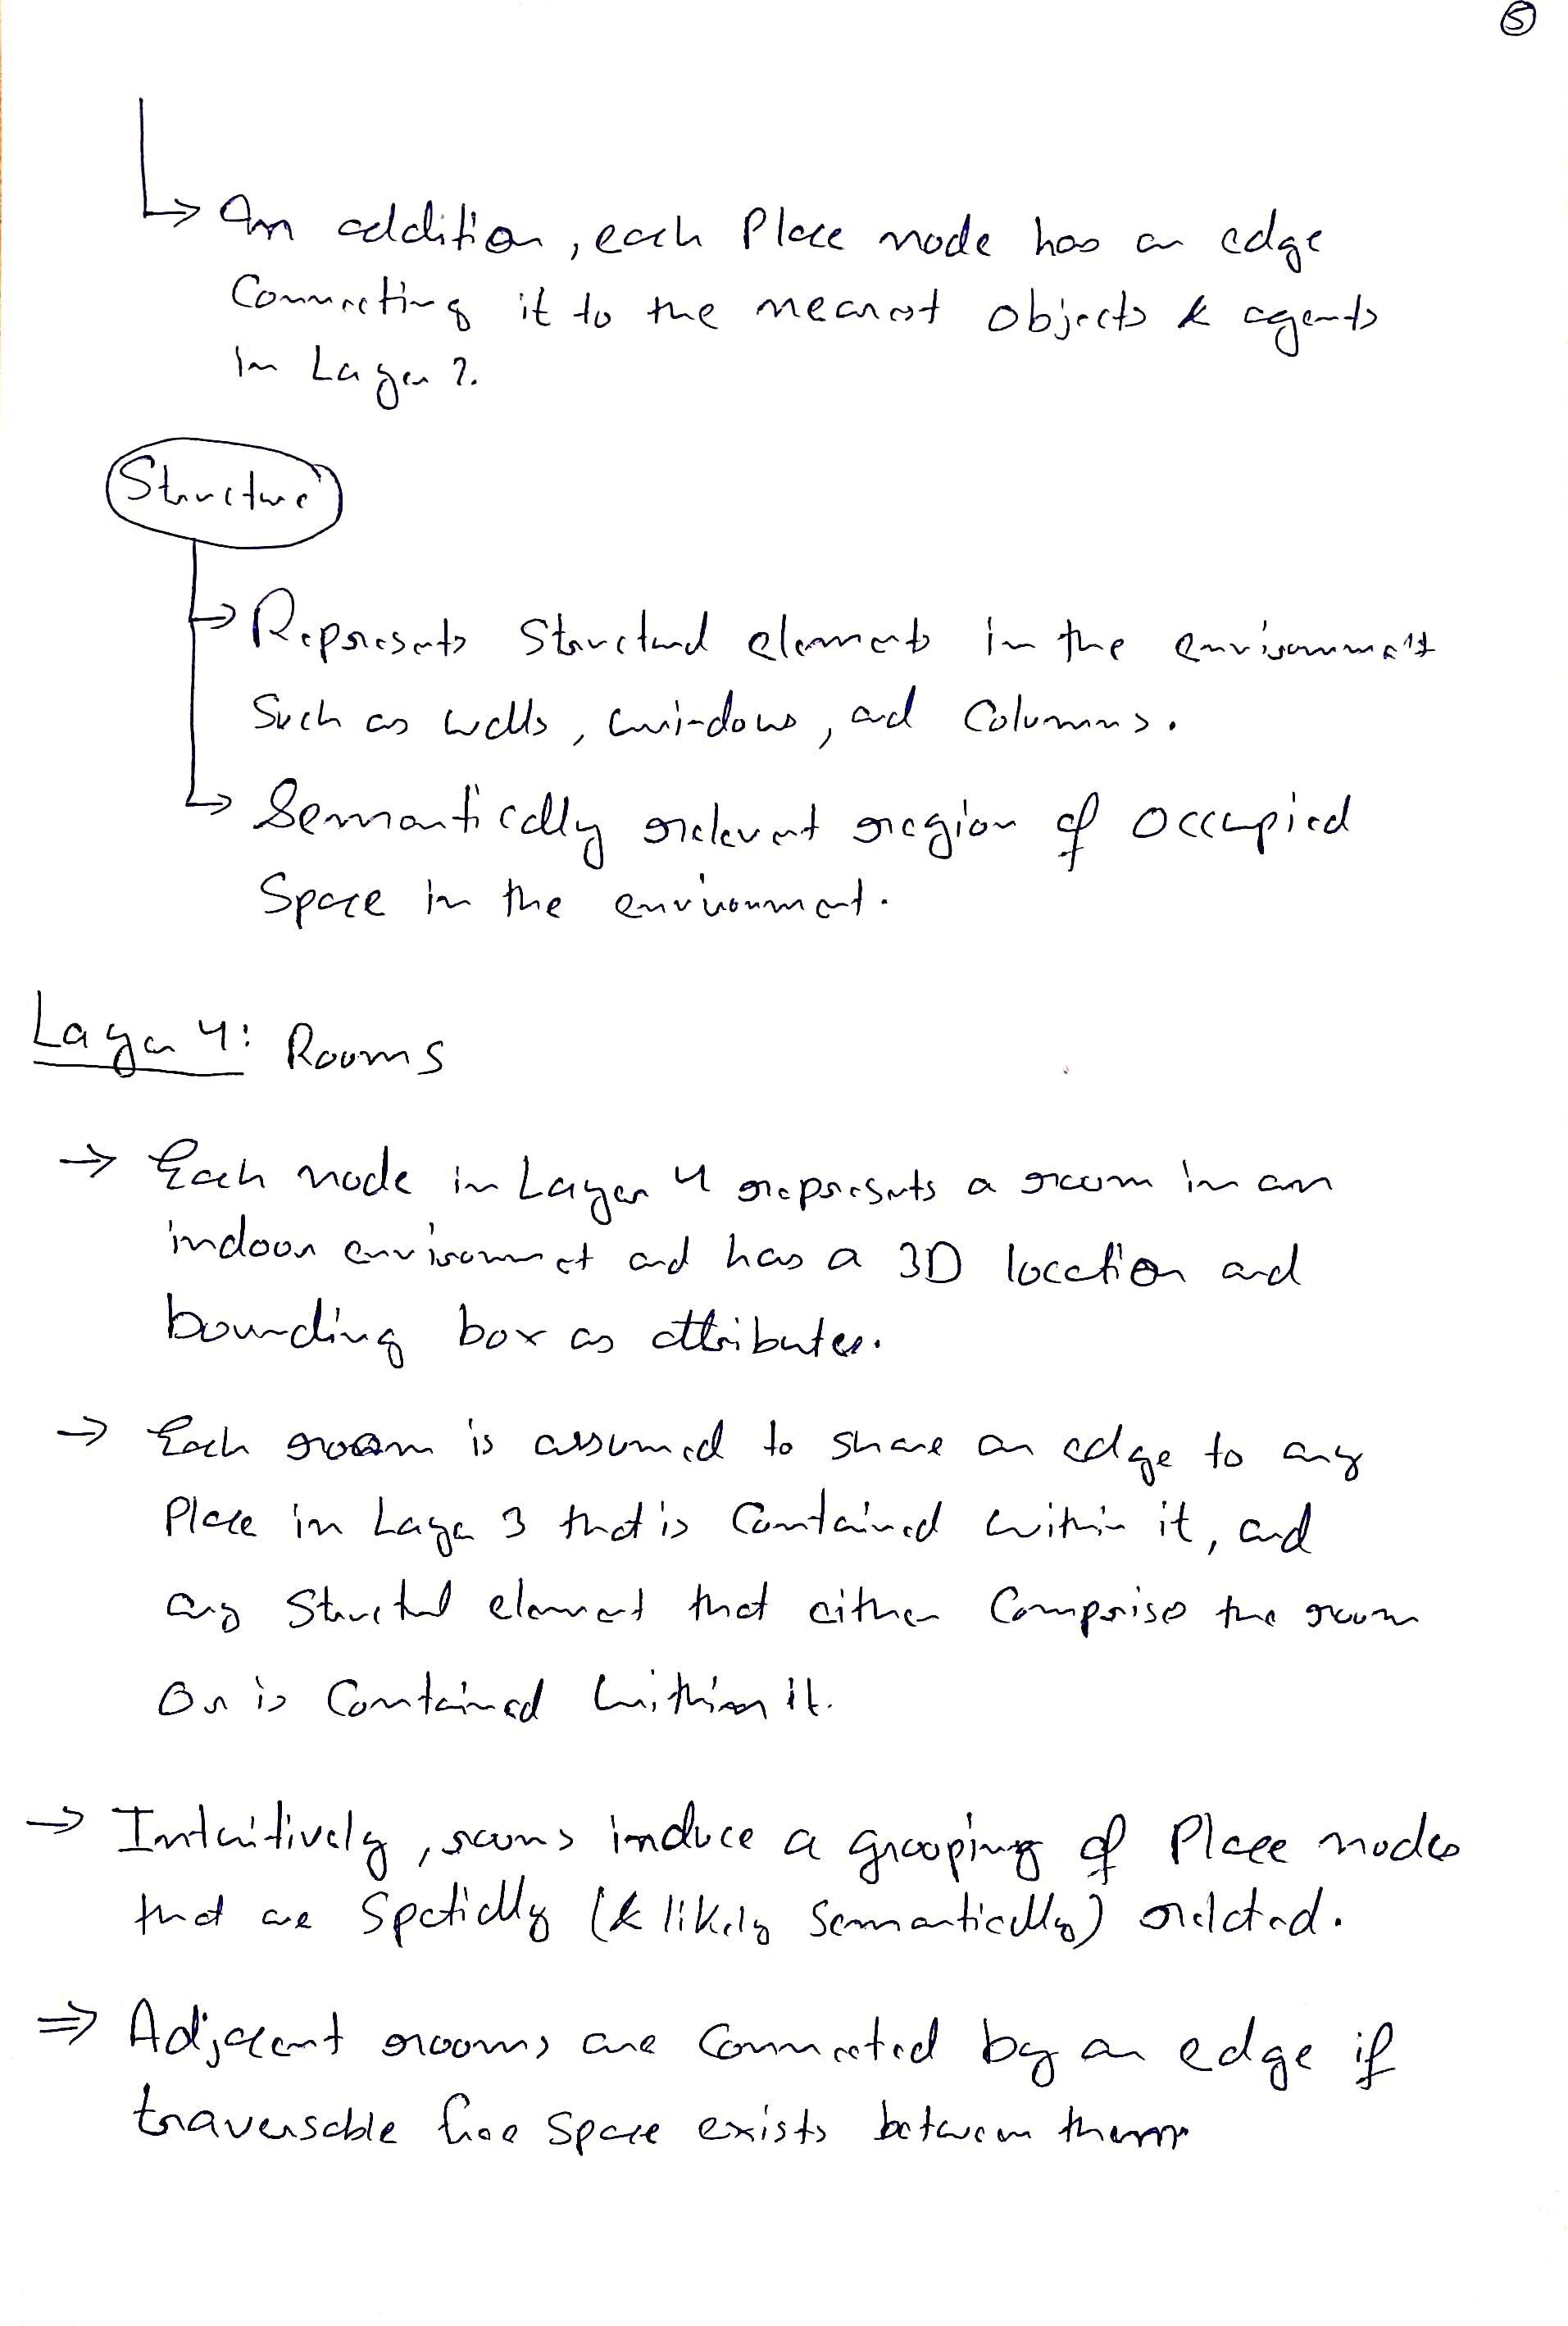 5
↳ In addition, each Place node has an edge
Connecting it to the nearest objects & agents
in Layer 2.
Structure
→ Represents Structural elements in the environment
Such as walls, windows, and Columns.
↳ Semantically relevant region of occupied
Space in the environment.
Layer 4: Rooms
→ Each node in Layer 4 represents a room in an
indoor environment and has a 3D location and
bounding box as attributes.
→ Each room is assumed to share an edge to any
Place in Layer 3 that is Contained within it, and
any Structural element that either Comprise the room
Or is Contained within it.
→ Intuitively, rooms induce a grooping of Place nodes
that are Spatially (& likely Semantically) related.
⇒ Adjacent rooms are Connected by an edge if
traversable free Space exists between them